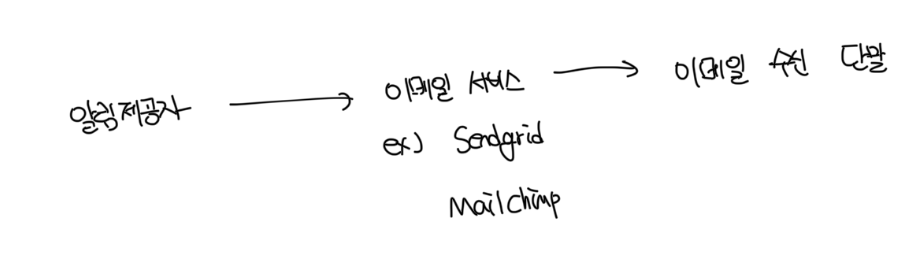 알림제공자 → 이메일 서비스 → 이메일 수신 단말
ex) Sendgrid
Mailchimp